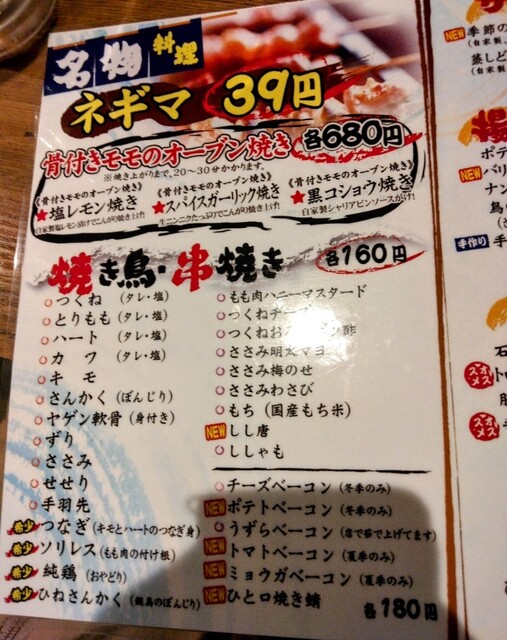 名物料理
ネギマ 39円
骨付きモモのオーブン焼き 各680円
※焼き上がりまで、20～30分かかります。
《骨付きモモのオーブン焼き》
★塩レモン焼き
自家製塩レモン漬けでこんがり焼き上げ!
《骨付きモモのオーブン焼き》
★スパイスガーリック焼き
生ニンニクたっぷりでこんがり焼き上げ!
《骨付きモモのオーブン焼き》
★黒コショウ焼き
自家製シャリアピンソースがけ!
焼き鳥・串焼き 各160円
つくね (タレ・塩)
とりもも (タレ・塩)
ハート (タレ・塩)
カワ (タレ・塩)
キモ
さんかく (ぼんじり)
ヤゲン軟骨 (身付き)
ずり
ささみ
せせり
手羽先
希少 つなぎ (キモとハートのつなぎ身)
希少 ソリレス (もも肉の付け根)
希少 純鶏 (おやどり)
希少 ひねさんかく (親鳥のぼんじり)
もも肉ハニーマスタード
つくねチーズ
つくねお
ン酢
ささみ明太マヨ
ささみ梅のせ
ささみわさび
もち (国産もち米)
NEW しし唐
ししゃも
チーズベーコン (冬季のみ)
NEW ポテトベーコン (冬季のみ)
うずらベーコン (店で茹で上げてます)
NEW トマトベーコン (夏季のみ)
NEW ミョウガベーコン (夏季のみ)
NEW ひと口焼き鯖
各180円
NEW 季節の
(自家製
蒸しど
(自家製
揚
ポテ
NEW バリ
ナン
鳥
手作り 手
石
オススメ トロ
豚
オススメ 手